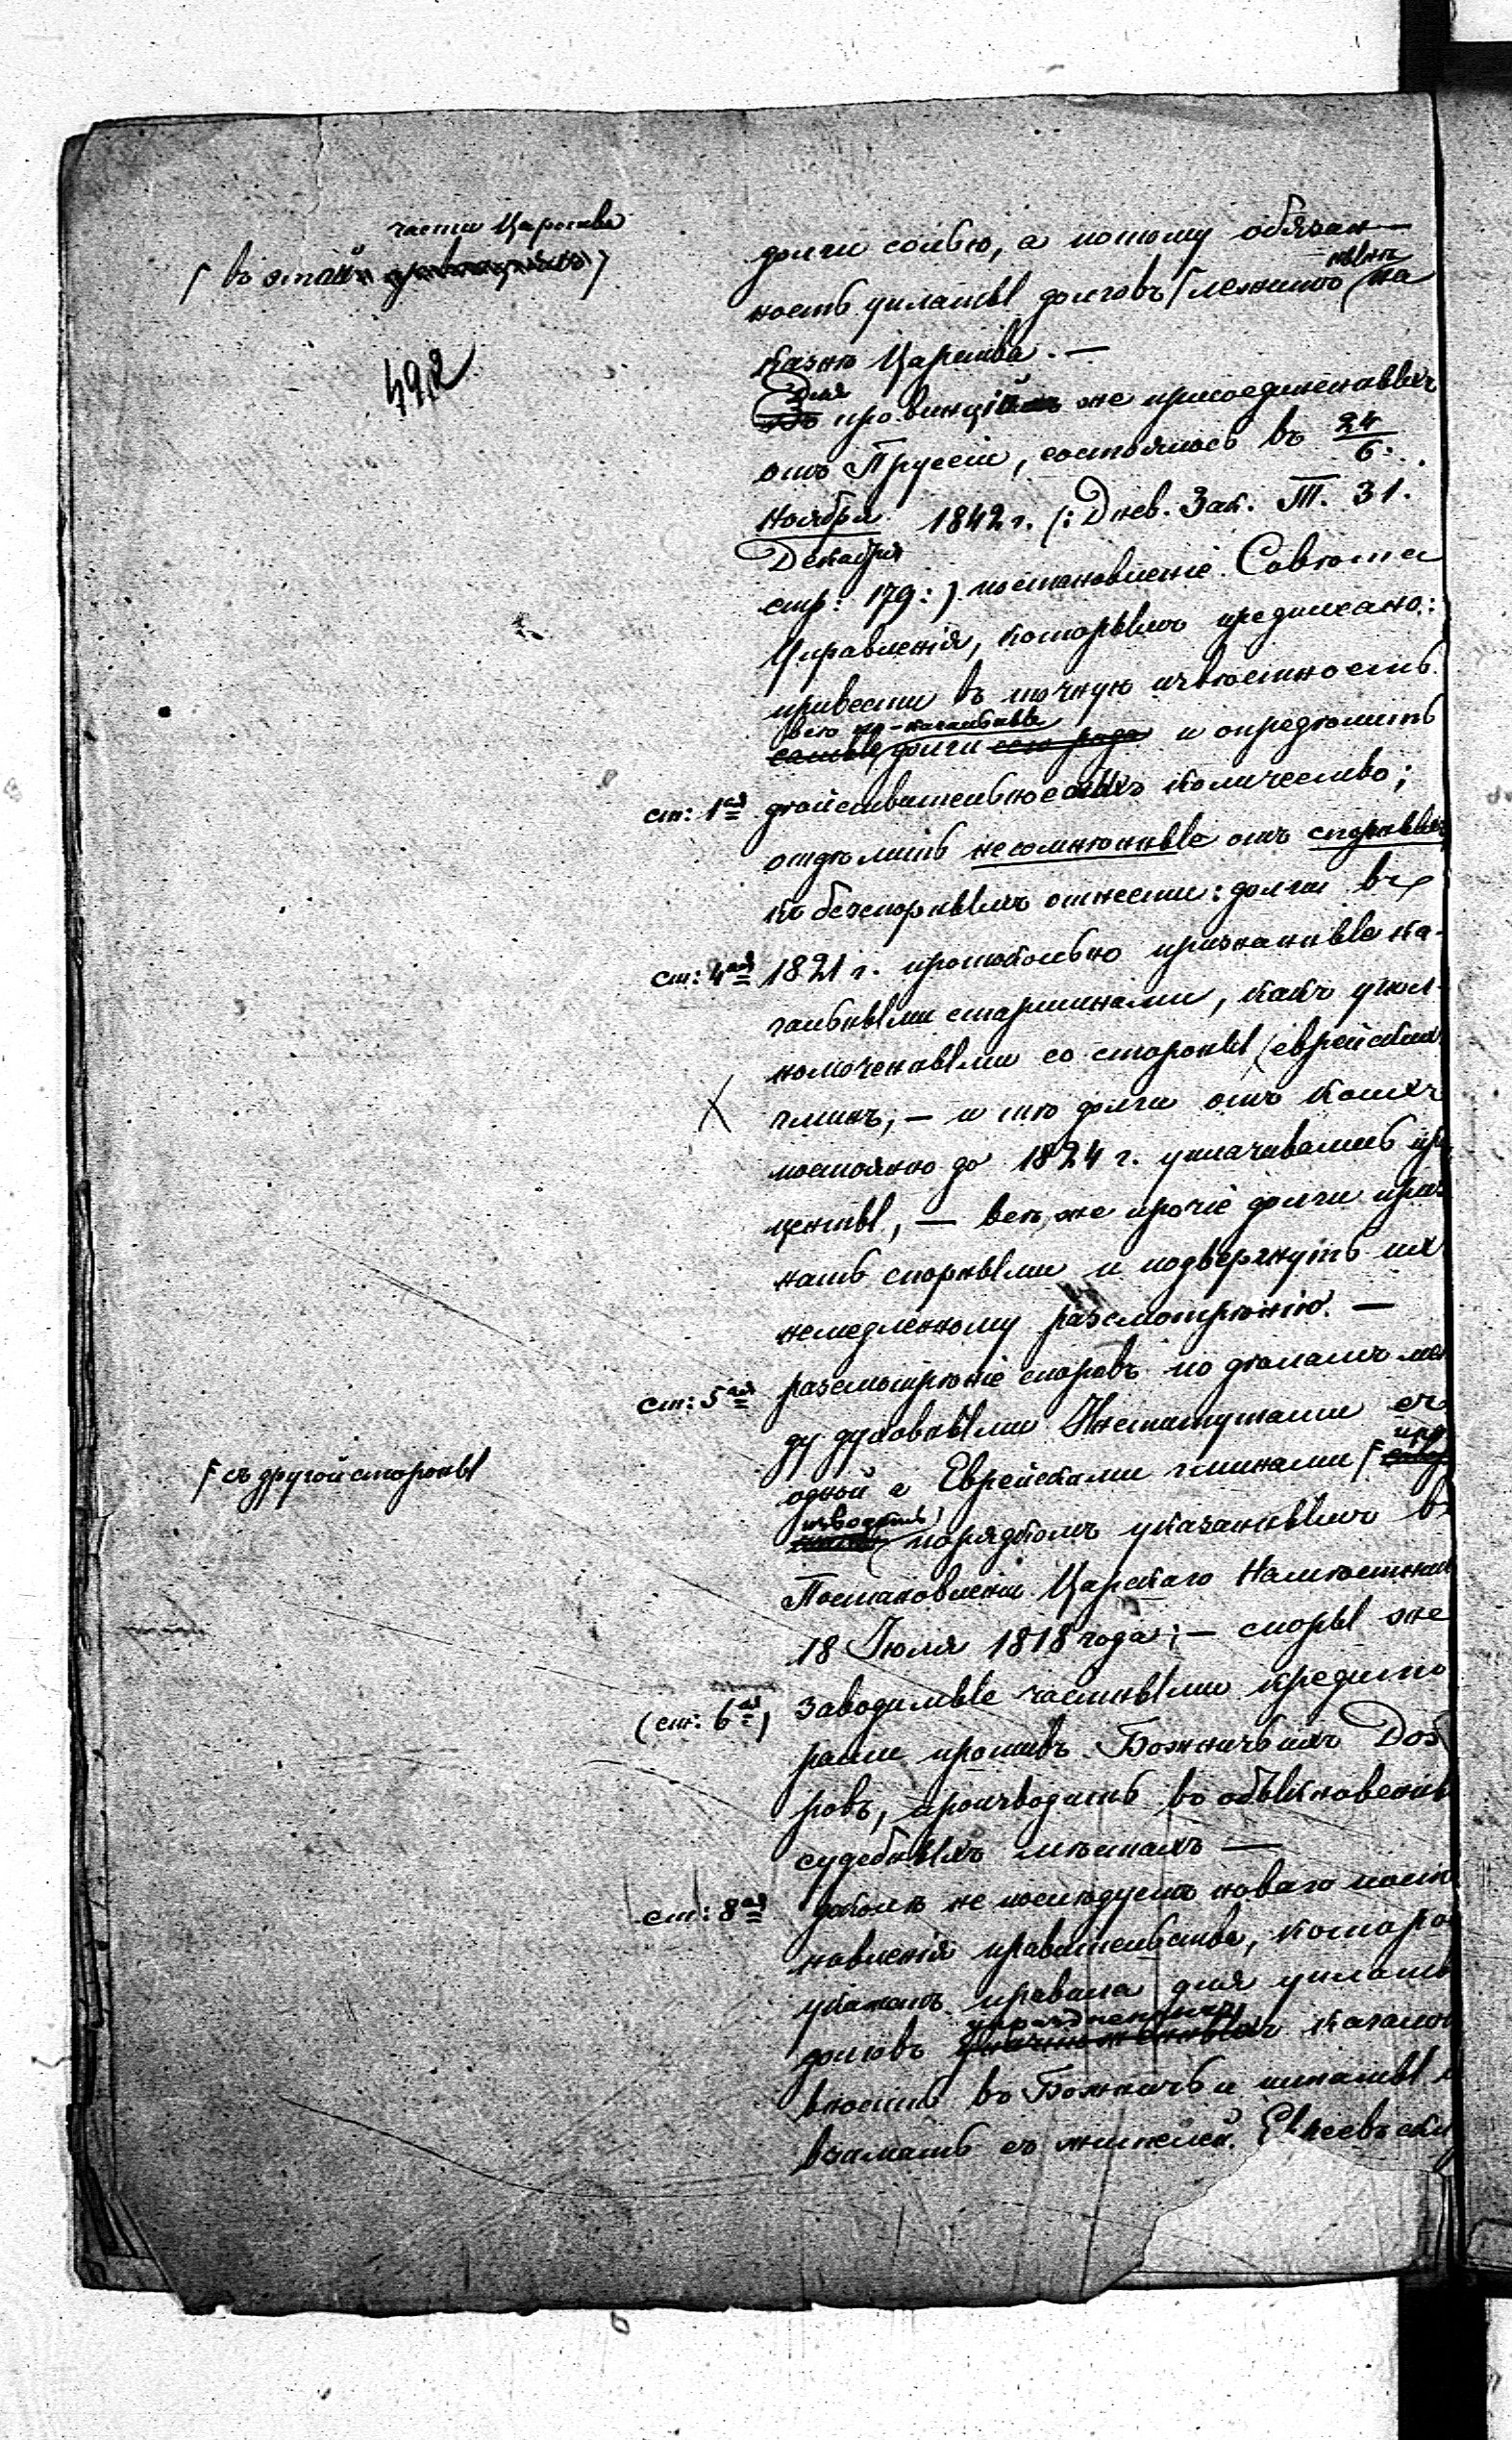 части Царства
въ этой
492
долги солью, а потому обязан-
ность уплаты долговъ лежитъ нынѣ на
Казнѣ Царства. —
Для провинцій же присоединенныхъ
отъ Пруссіи, состоялось въ 24/6.
Ноября/Декабря 1842 г. (: Днев. Зак. Т. 31.
стр: 179:) постановленіе Совѣта
Управленія, которымъ предписано:
привести въ точную извѣстность
долги сего рода и опредѣлить
ст: 1ая дѣйствительное ихъ количество;
отдѣлить несомнѣнные отъ спорныхъ
къ безспорнымъ отнести: долги въ
ст: 4ая 1821 г. протокольно признанные ка-
гальными старшинами, какъ упол-
номоченными со стороны еврейскихъ
гминъ, — и тѣ долги отъ коихъ
постоянно до 1824 г. уплачивались про
центы, — всѣ же прочіе долги приз
нать спорными и подвергнуть ихъ
немедленному разсмотрѣнію. —
ст: 5ая разсмотрѣніе споровъ по дѣламъ меж
ду духовными Институтами съ
одной а Еврейскими гминами
съ другой стороны
порядкомъ указаннымъ въ
Постановленіи Царскаго Намѣстника
18 Іюля 1818 года; — споры же
(ст: 6ая) заводимые частными кредито
рами противъ Божничьихъ Доз
ровъ, производить въ обыкновенны
судебныхъ мѣстахъ —
ст: 8ая доколѣ не послѣдуетъ новаго поста
новленія правительства, которое
укажетъ правила для уплаты
долговъ упраздненныхъ кагаловъ
вносить въ Божничьи
взимать съ жителей Евреевъ